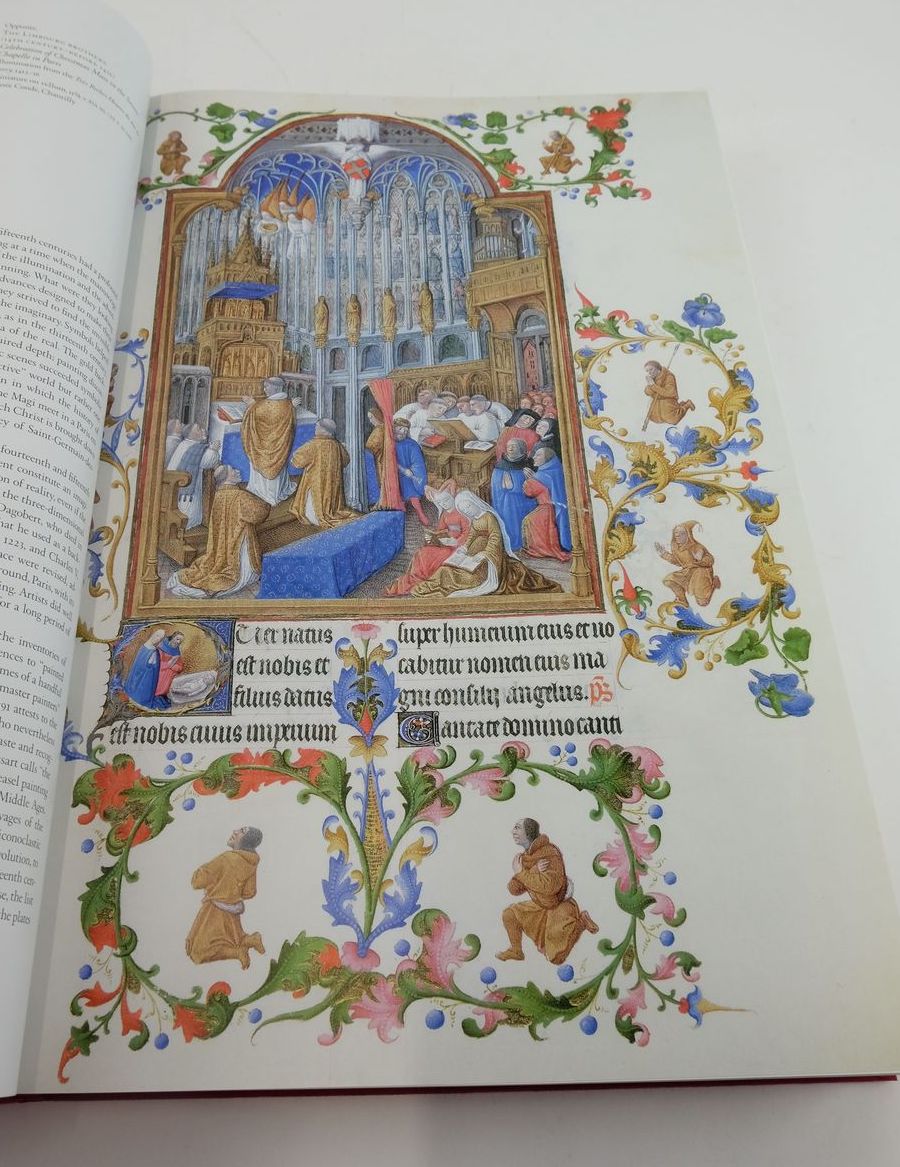 Opposite
THE LIMBOURG BROTHERS
Celebration of Christmas Mass in the
Chapelle in Paris
Illumination from the Très Riches Heures
Chantilly
fifteenth centuries had a
ng at a time when the
the illumination and the
nning. What were the
advances designed to make
ey strived to find the
he imaginary. Symbolic
as in the thirteenth
a of the real. The gold
ured depth; painters
c scenes succeeded
ective" world but rather
n in which the human
he Magi meet in a Paris
ch Christ is brought down
cy of Saint-Germain-des-
fourteenth and fifteenth
ent constitute an
on of reality, even if the
the three-dimensional
Dagobert, who died
hat he used as a
1223, and Charles V
ace were revised, ad-
round, Paris, with its
ing. Artists did
or a long period of
the inventories of
ences to "painted
mes of a handful
master painters"
91 attests to the
ho nevertheless
aste and recog-
ssart calls "the
easel painting
Middle Ages,
vages of the
iconoclastic
volution, to
eenth cen-
se, the list
the plates
Puer natus
est nobis et
filius datus
est nobis cuius imperium
super humerum eius et uo
cabitur nomen eius ma
gni consilij angelus. ps
Cantate domino canti